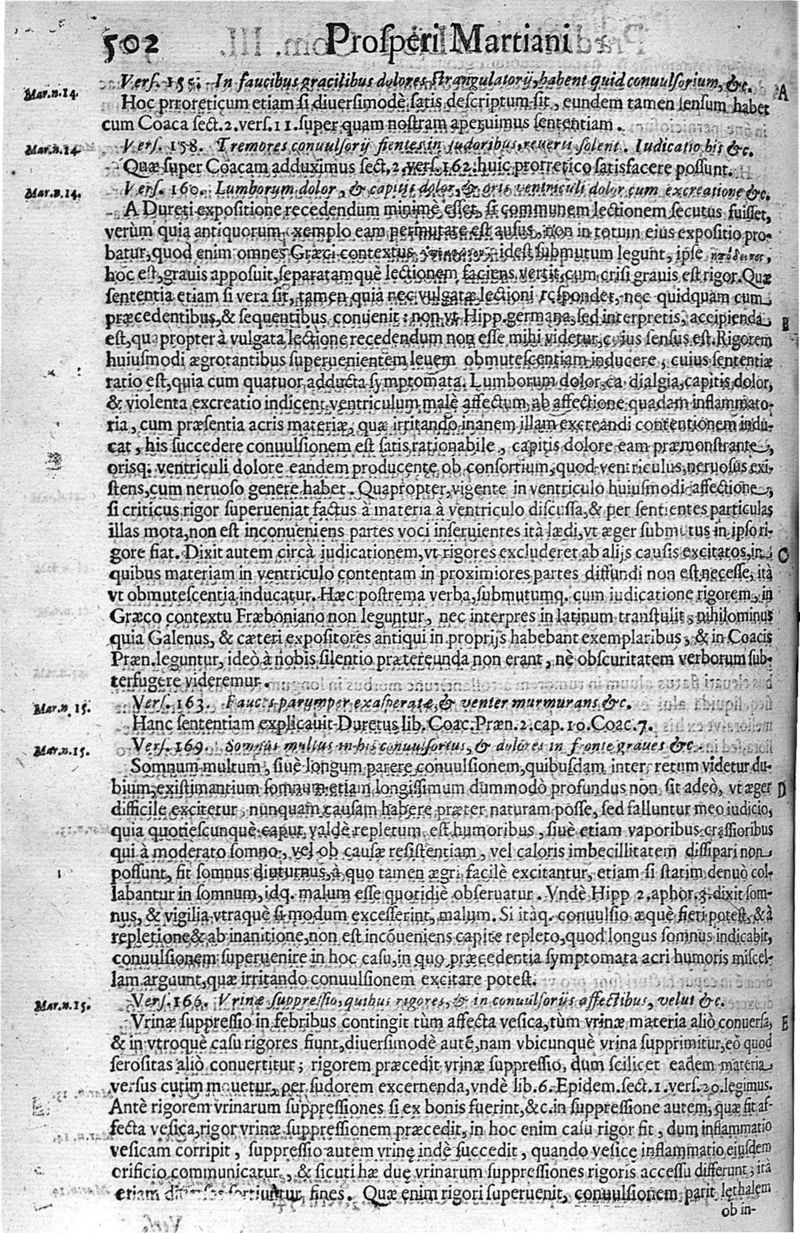 502 Prosperi Martiani
Mar.n.14. Vers. 155. In faucibus gracilibus dolores strangulatorij, habent quid conuulsorium, &c. A
Hoc prroreticum etiam si diuersimodè satis descriptum sit, eundem tamen sensum habet
cum Coaca sect.2. vers.11. super quam nostram aperuimus sententiam.
Mar.n.14. Vers. 158. Tremores conuulsorij fientes in sudoribus, reuerti solent. Iudicatio his &c.
Quæ super Coacam adduximus sect.2. vers.162. huic prorretico satisfacere possunt.
Mar.n.14. Vers. 160. Lumborum dolor, & capitis dolor, & oris ventriculi dolor cum excreatione &c.
A Dureti expositione recedendum minimè esset, si communem lectionem secutus fuisset,
verùm quia antiquorum exemplo eam permutare est ausus, non in totum eius expositio pro-
batur, quod enim omnes Græci contextus idest submutum legunt, ipse
hoc est, grauis apposuit, separatamquè lectionem faciens vertit, cum crisi grauis est rigor. Quæ
sententia etiam si vera sit, tamen quia nec vulgatæ lectioni respondet, nec quidquam cum
præcedentibus, & sequentibus conuenit: non vt Hipp. germana, sed interpretis, accipienda B
est, quapropter à vulgata lectione recedendum non esse mihi videtur, cuius sensus est. Rigorem
huiusmodi ægrotantibus superuenientem leuem obmutescentiam inducere, cuius sententiæ
ratio est, quia cum quatuor adducta symptomata, Lumborum dolor, ca dialgia, capitis dolor,
& violenta excreatio indicent ventriculum malè affectum, ab affectione quadam inflammato-
ria, cum præsentia acris materiæ, quæ irritando inanem illam excreandi contentionem indu-
cat, his succedere conuulsionem est satis rationabile, capitis dolore eam præmonstrante,
orisq. ventriculi dolore eandem producente ob consortium, quod ventriculus, neruosus exi-
stens, cum neruoso genere habet. Quapropter, vigente in ventriculo huiusmodi affectione,
si criticus rigor superueniat factus à materia à ventriculo discussa, & per sentientes particulas
illas mota, non est inconueniens partes voci inseruientes ità lædi, vt æger submutus in ipso ri-
gore fiat. Dixit autem circà iudicationem, vt rigores excluderet ab alijs causis excitatos, in C
quibus materiam in ventriculo contentam in proximiores partes diffundi non est necesse, ità
vt obmutescentia inducatur. Hæc postrema verba, submutumq. cum iudicatione rigorem, in
Græco contextu Fræboniano non leguntur, nec interpres in latinum transtulit, nihilominus
quia Galenus, & cæteri expositores antiqui in proprijs habebant exemplaribus, & in Coacis
Præn. leguntur, ideò à nobis silentio prætereunda non erant, nè obscuritatem verborum sub-
terfugere videremur.
Mar.n.15. Vers. 163. Fauces parumper exasperatæ, & venter murmurans &c.
Hanc sententiam explicauit Duretus lib. Coac. Præn. 2. cap. 10. Coac. 7.
Mar.n.15. Vers. 169. Somnus multus in his conuulsorius, & dolores in fronte graues &c.
Somnum multum, siuè longum parere conuulsionem, quibusdam inter retum videtur du-
bium, existimantium somnum etiam longissimum dummodò profundus non sit adeò, vt æger D
difficile excitetur, nunquam causam habere præter naturam posse, sed falluntur meo iudicio,
quia quotiescunquè caput valdè repletum est humoribus, siuè etiam vaporibus crassioribus
qui à moderato somno, vel ob causæ resistentiam, vel caloris imbecillitatem dissipari non
possunt, fit somnus diuturnus, à quo tamen ægri facilè excitantur, etiam si statim denuò col-
labantur in somnum, idq. malum esse quotidiè obseruatur. Vndè Hipp 2. aphor. 3. dixit som-
nus, & vigilia vtraquè si modum excesserint, malum. Si itàq. conuulsio æquè fieri potest, & à
repletione & ab inanitione, non est incōueniens capite repleto, quod longus somnus indicabit,
conuulsionem superuenire in hoc casu, in quo præcedentia symptomata acri humoris miscel-
lam arguunt, quæ irritando conuulsionem excitare potest.
Mar.n.15. Vers. 166. Vrinæ suppressio, quibus rigores, & in conuulsorijs affectibus, velut &c.
Vrinæ suppressio in febribus contingit tùm affecta vesica, tùm vrinæ materia aliò conuersa, E
& in vtroquè casu rigores fiunt, diuersimodè autē, nam vbicunquè vrina supprimitur, eò quod
serositas aliò conuertitur; rigorem præcedit vrinæ suppressio, dum scilicet eadem materia
versus cutim mouetur, per sudorem excernenda, vndè lib. 6. Epidem. sect. 1. vers. 20. legimus.
Antè rigorem vrinarum suppressiones si ex bonis fuerint, &c. in suppressione autem, quæ fit af-
fecta vesica, rigor vrinæ suppressionem præcedit, in hoc enim casu rigor fit, dum inflammatio
vesicam corripit, suppressio autem vrinę indè succedit, quando vesicę inflammatio eiusdem
orificio communicatur, & sicuti hæ duę vrinarum suppressiones rigoris accessu differunt, ità
etiam fines. Quæ enim rigori superuenit, conuulsionem parit lęthalem
ob in-